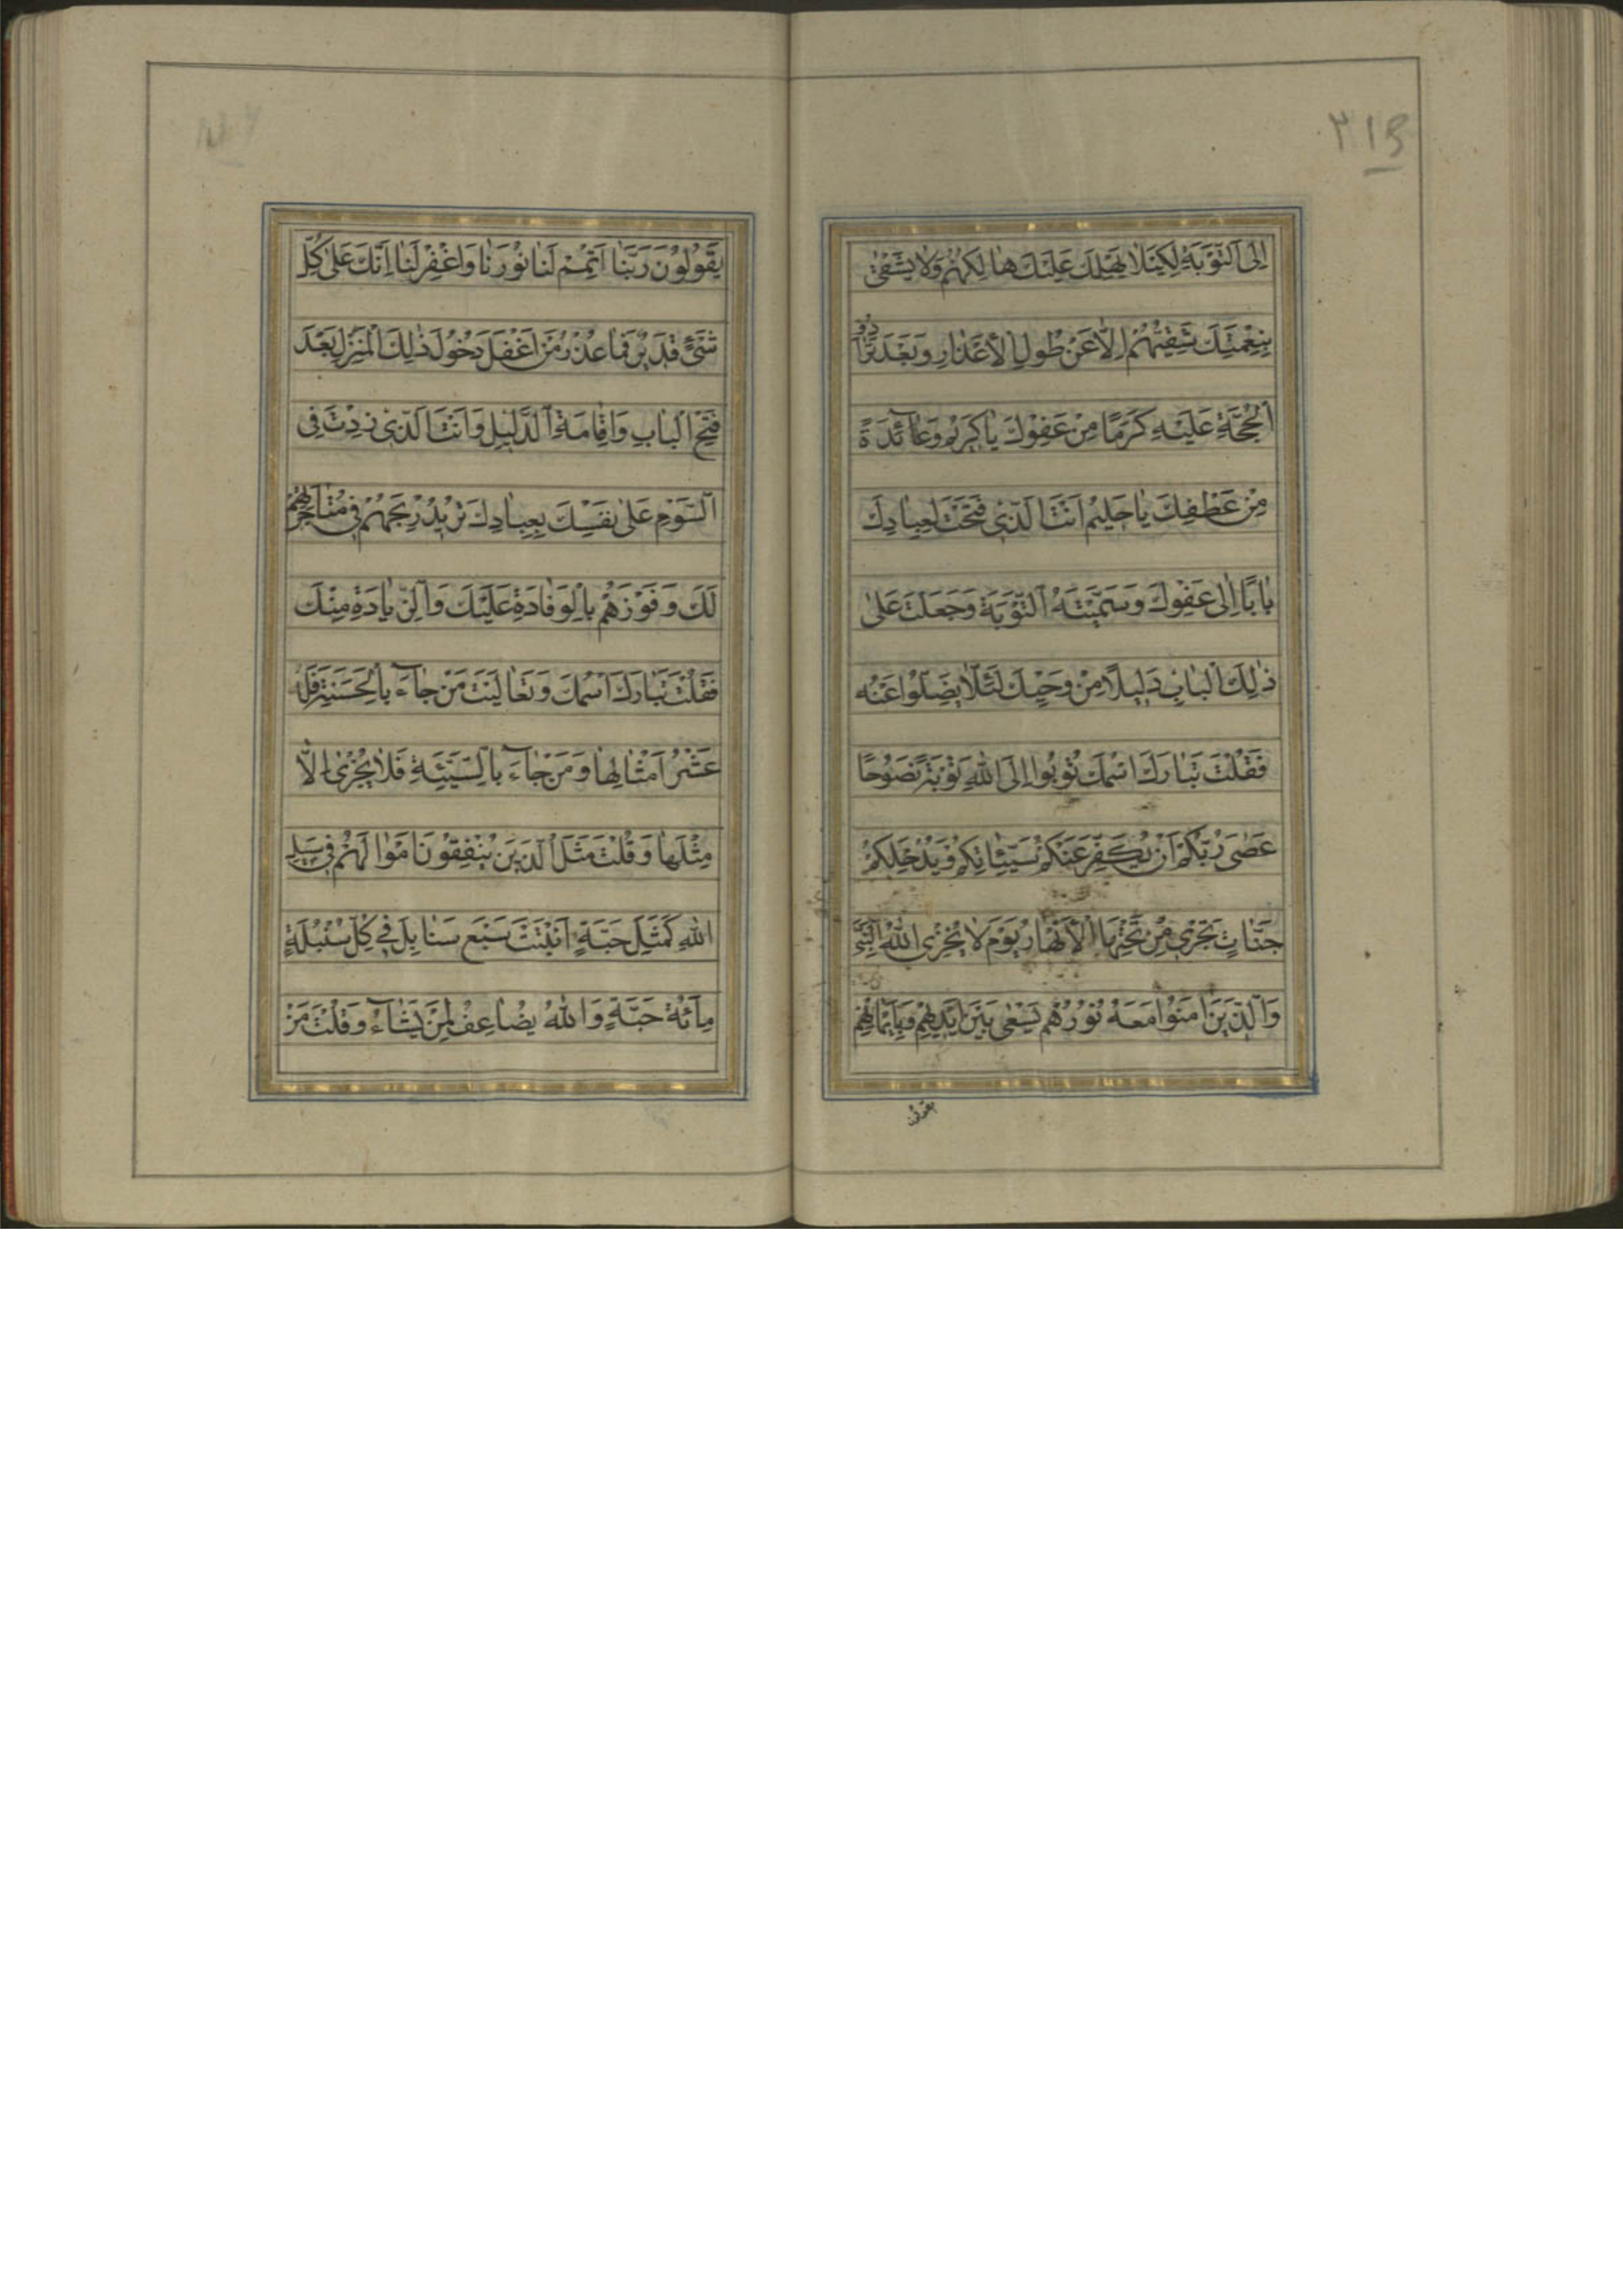 ٣١٥
اِلَى اَلتَّوْبَةِ لِكَيْلَا يَهْلِكَ عَلَيْكَ هَا لِكُهُمْ وَلَا يَشْقٰى
بِنِعْمَتِكَ شَقِيُّهُمْ اِلَّا عَنْ طُولِ الْأَعْذَارِ وَبَعْدَ تَرَادُفِ
اَلْحُجَّةِ عَلَيْهِ كَرَمًا مِنْ عَفْوِكَ يَا كَرِيمُ وَعَآئِدَةً
مِنْ عَطْفِكَ يَا حَلِيمُ اَنْتَ الَّذِي فَتَحْتَ لِعِبَادِكَ
بَابًا اِلٰى عَفْوِكَ وَسَمَّيْتَهُ اَلتَّوْبَةَ وَجَعَلْتَ عَلٰى
ذٰلِكَ الْبَابِ دَلِيلًا مِنْ وَحْيِكَ لَئَلَّا يَضِلُّوا عَنْهُ
فَقُلْتَ تَبَارَكَ اسْمُكَ تُوبُوا اِلَى اللّٰهِ تَوْبَةً نَصُوحًا
عَصٰى رَبُّكُمْ اَنْ يُكَفِّرَ عَنْكُمْ سَيِّئَاتِكُمْ وَيُدْخِلَكُمْ
جَنَّاتٍ تَجْرِي مِنْ تَحْتِهَا الْأَنْهَارُ يَوْمَ لَا يُخْزِي اللّٰهُ النَّبِيَّ
وَالَّذِينَ اٰمَنُوا مَعَهُ نُورُهُمْ يَسْعٰى بَيْنَ اَيْدِيهِمْ وَبِاَيْمَانِهِمْ
يقولون
يَقُولُونَ رَبَّنَا اَتْمِمْ لَنَا نُورَنَا وَاغْفِرْ لَنَا اِنَّكَ عَلٰى كُلِّ
شَيْءٍ قَدِيرٌ فَمَا عُذْرُ مَنْ اَغْفَلَ دُخُولَ ذٰلِكَ الْمَنْزِلِ بَعْدَ
فَتْحِ الْبَابِ وَاِقَامَةِ الدَّلِيلِ وَاَنْتَ الَّذِي زِدْتَ فِي
اَلسَّوْمِ عَلٰى نَفْسِكَ بِعِبَادِكَ تُرِيدُ رِبْحَهُمْ فِي مُتَاجَرَتِهِمْ
لَكَ وَفَوْزَهُمْ بِالْوَفَادَةِ عَلَيْكَ وَالزِّيَادَةِ مِنْكَ
فَقُلْتَ تَبَارَكَ اسْمُكَ وَتَعَالَيْتَ مَنْ جَآءَ بِالْحَسَنَةِ فَلَهُ
عَشْرُ اَمْثَالِهَا وَمَنْ جَآءَ بِالسَّيِّئَةِ فَلَا يُجْزٰى اِلَّا
مِثْلَهَا وَقُلْتَ مَثَلُ الَّذِينَ يُنْفِقُونَ اَمْوَالَهُمْ فِي سَبِيلِ
اللّٰهِ كَمَثَلِ حَبَّةٍ اَنْبَتَتْ سَبْعَ سَنَابِلَ فِي كُلِّ سُنْبُلَةٍ
مِآئَةُ حَبَّةٍ وَاللّٰهُ يُضَاعِفُ لِمَنْ يَشَآءُ وَقُلْتَ مَنْ